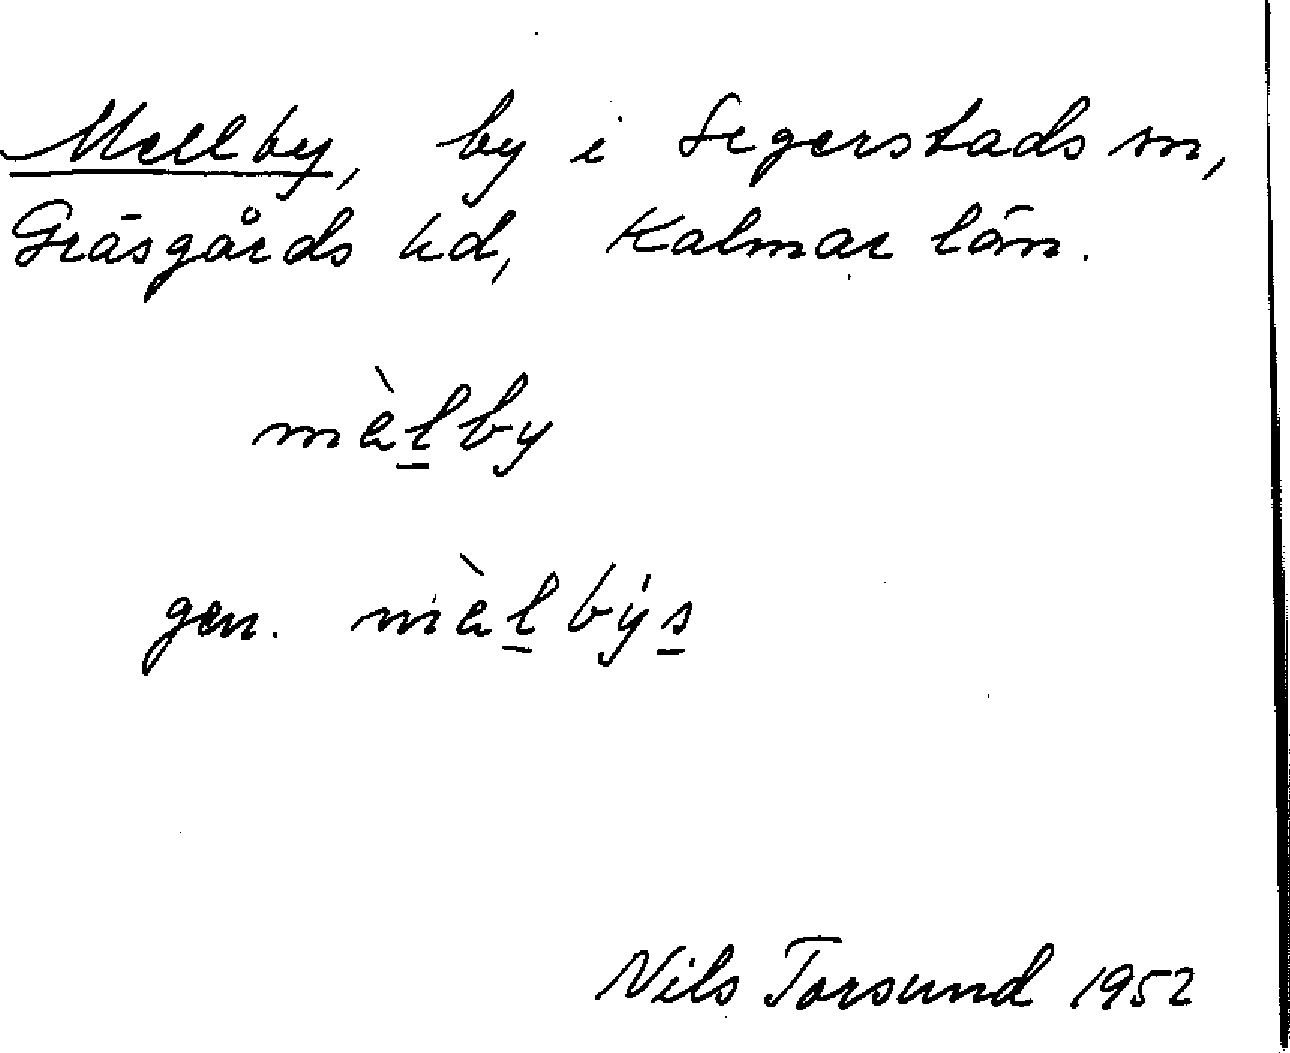 Mellby, by i Segerstads sn,
Gräsgårds hd, Kalmar län.
mæ̀l̲by
gen. mæ̀l̲býs̲
Nils Torsund 1952